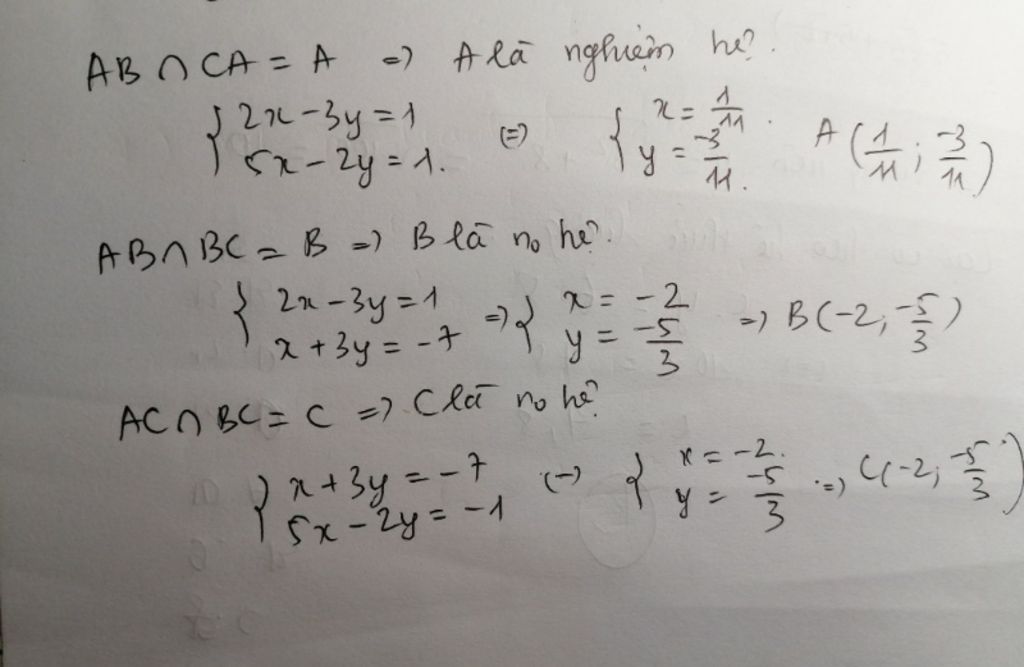 AB ∩ CA = A => A là nghiệm hệ.
{ 2x - 3y = 1 ; 5x - 2y = 1. (=) { x = 1/11 . ; y = -3/11. A (1/11 ; -3/11)
AB ∩ BC = B => B là no hệ.
{ 2x - 3y = 1 ; x + 3y = -7 => { x = -2 ; y = -5/3 => B(-2, -5/3)
AC ∩ BC = C => C là no hệ
{ x + 3y = -7 ; 5x - 2y = -1 (-) { x = -2. ; y = -5/3 => C(-2, -5/3)